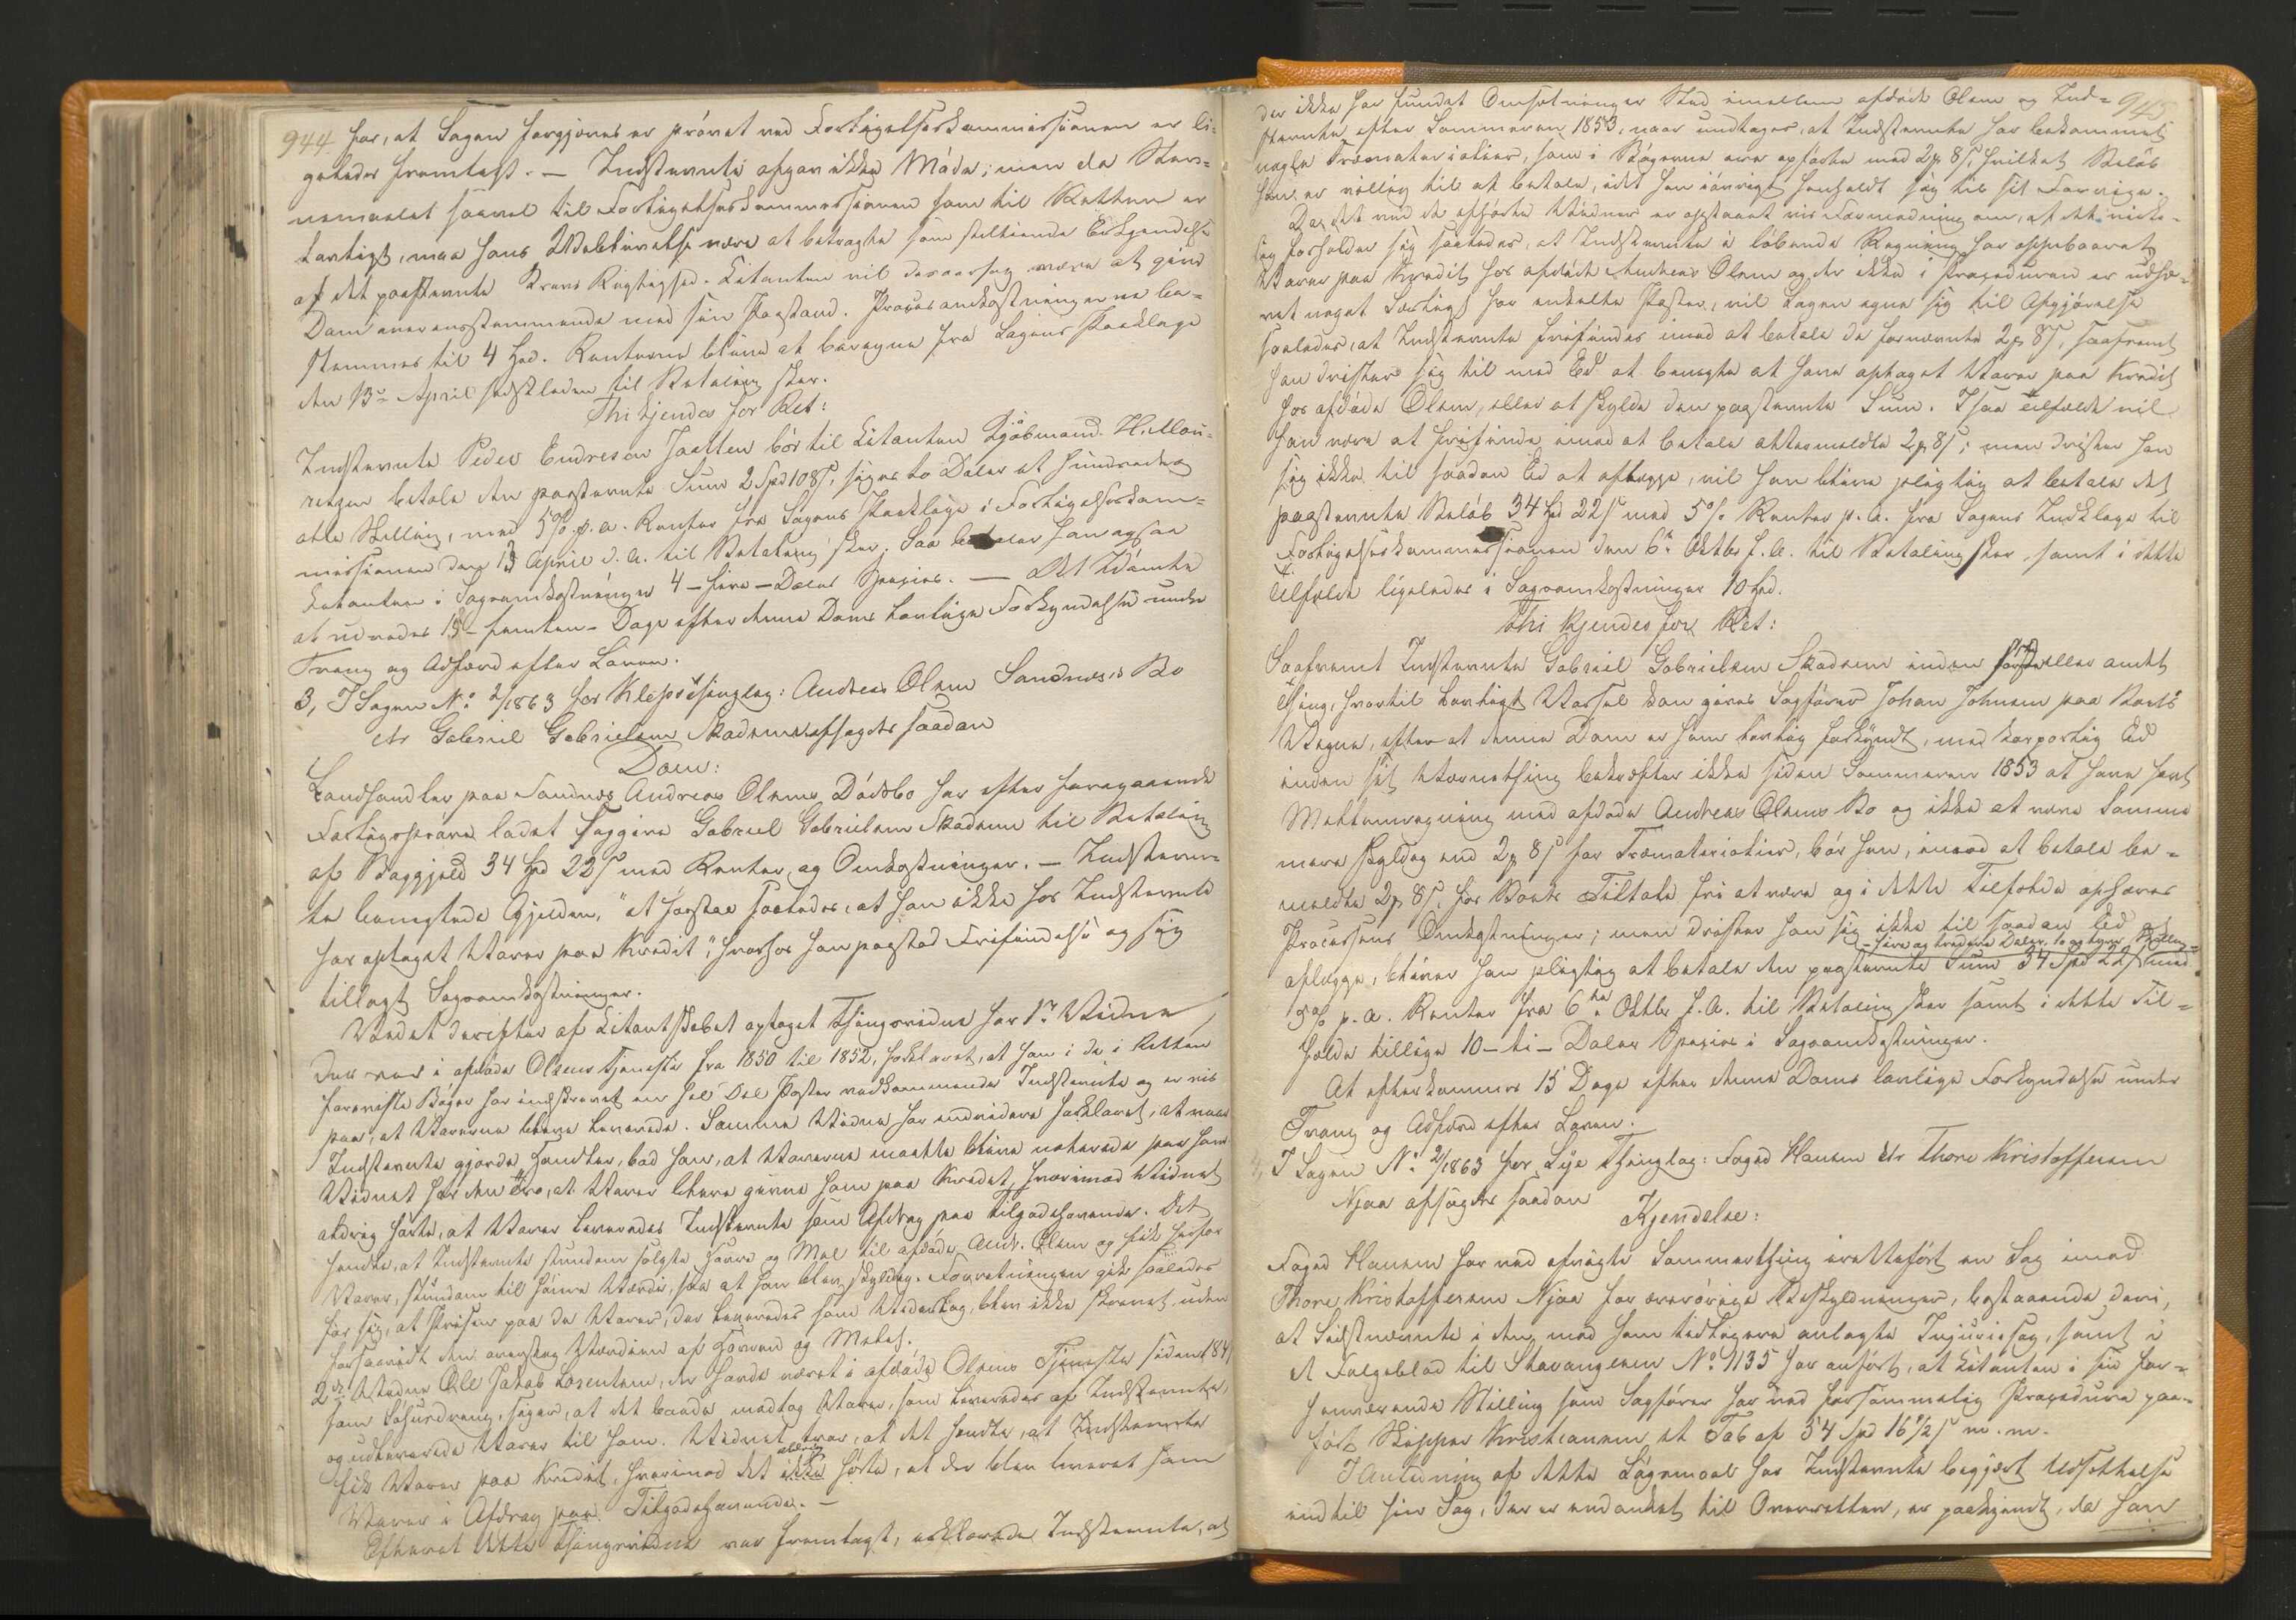 944
for, at Sagen forgjæves er prøvet ved Forligelseskommissionen er li-
geledes fremlagt. — Indstevnte afgav ikke Møde; men da Stev-
nemaalet saavel til Forligelseskommissionen som til Retten er
lovligt, maa hans Udeblivelse være at betragte som stiltiende Erkjendelse
af det paastevnte Kravs Rigtighed. Citanten vil deraarsag være at give
Dom overensstemmende med sin Paastand. Procesomkostningerne be-
stemmes til 4 Spd. Renterne blive at beregne fra Sagens Paaklage
den 13de April sidstleden til Betaling sker.
Thi kjendes for Ret:
Indstevnte Peder Endresen Jaatten bør til Citanten Kjøbmand H. Mau-
ritzen betale den paastevnte Sum 2 Spd 108 s, siger to Daler et hundrede og
otte Skilling, med 5% p. a. Renter fra Sagens Paaklage i Forligelseskom-
missionen den 13 April d. A. til Betaling sker. Saa betaler han ogsaa
Citanten i Sagsomkostninger 4 – fire – Daler Species. — Det Idømte
at udredes 15 – femten – Dage efter denne Doms lovlige Forkyndelse under
Tvang og Adfærd efter Loven.
3, I Sagen No 2/1863 for Klep Thinglag: Andreas Olsen Sandnes's Bo
ctr Gabriel Gabrielsen Skadsem afsagdes saadan
Dom:
Landhandler paa Sandnes Andreas Olsens Dødsbo har efter foregaaende
Forligsprøve ladet sagsøge Gabriel Gabrielsen Skadsem til Betaling
af Boggjæld 34 Spd 22 s med Renter og Omkostninger. — Indstevn-
te benægtede Gjælden, "at forstaa saaledes, at han ikke har Indstevnte
har optaget Varer paa Kredit", hvorfor han paastod Frifindelse og sig
tillagt Sagsomkostninger.
Ved et derefter af Citantskabet optaget Thingsvidne har 1ste Vidne,
der var i afdøde Olsens Tjeneste fra 1850 til 1852, forklaret, at han i de i Retten
foreviste Bøger har indskrevet en hel Del Poster vedkommende Indstevnte og er vis
paa, at Varerne bleve leverede. Samme Vidne har endvidere forklaret, at naar
Indstevnte gjorde Handler, bad han, at Varerne maatte blive noterede paa ham
Vidnet har den Tro, at Varer bleve givne ham paa Kredit, hvorimod Vidnet
aldrig hørte, at Varer leveredes Indstevnte som Afdrag paa Tilgodehavende. Det
hændte, at Indstevnte stundom solgte Korn og Mel til afdøde Andr. Olsen og fik herfor
Varer, stundom til større Værdi, saa at han blev skyldig. Forretningen gik saaledes
for sig, at Prisen paa de Varer, der leveredes som Vederlag, blev ikke skrevet uden
forsaavidt den oversteg Værdien af Kornet og Melet.
2det Vidne Ole Jakob Lorentsen, der havde været i afdøde Olsens Tjeneste siden 1841
som Søsurdreng, siger, at det baade modtog Varer, som leveredes af Indstevnte,
og udleverede Varer til ham. Vidnet tror, at det hændte, at Indstevnte
aldrig
fik Varer paa Kredit, hvorimod det ikke hørte, at der blev leveret ham
Varer i Afdrag paa Tilgodehavende. —
Efterat dette Thingsvidne var fremlagt, erklærede Indstevnte, at
945
der ikke har fundet Omsætninger Sted imellem afdøde Olsen og Ind-
stevnte efter Sommeren 1853, naar undtages, at Indstevnte har bekommet
nogle Træmaterialier, som i Bøgerne ere opførte med 2 p 8 s, hvilket Beløb
han er villig til at betale, idet han iøvrigt henholdt sig til sit Forrige.
Da det ved de opførte Vidner er opstaaet en Formodning om, at det virke-
lig forholder sig saaledes, at Indstevnte i løbende Regning har oppebaaret
Varer paa Kredit hos afdøde Andreas Olsen og der ikke i Proceduren er udhæ-
vet noget Særligt for enkelte Poster, vil Sagen egne sig til Afgjørelse
saaledes, at Indstevnte frifindes imod at betale de fornævnte 2 p 8 s, saafremt
han drister sig til med Ed at benægte at have optaget Varer paa Kredit
hos afdøde Olsen, eller at skylde den paastevnte Sum. I saa Tilfælde vil
han være at frifinde imod at betale ottermeldte 2 p 8 s; men drister han
sig ikke til saadan Ed at aflægge, vil han blive pligtig at betale det
paastevnte Beløb 34 Spd 22 s med 5% Renter p. a. fra Sagens Indklage til
Forligelseskommissionen den 6te Oktbr f. A. til Betaling sker, samt i dette
Tilfælde ligeledes i Sagsomkostninger 10 Spd.
Thi kjendes for Ret:
Saafremt Indstevnte Gabriel Gabrielsen Skadsem inden første eller andet
Thing, hvortil lovligt Varsel kan gives Sagfører Johan Johnsen paa Boets
Vegne, efter at denne Dom er ham lovlig forkyndt, med korporlig Ed
inden sit Vernething bekræfter ikke siden Sommeren 1853 at have havt
Mellemregning med afdøde Andreas Olsens Bo og ikke at være Samme
mere skyldig end 2 p 8 s for Træmaterialier, bør han, imod at betale be-
meldte 2 p 8 s, for Boets Tiltale fri at være og i dette Tilfælde ophæves
Processens Omkostninger; men drister han sig ikke til saadan Ed at
– fire og tredive Daler, to og tyve Skilling –
aflægge, bliver han pligtig at betale den paastevnte Sum 34 Spd 22 s med
5% p. a. Renter fra 6te Oktbr f. A. til Betaling sker samt i dette Til-
fælde tillige 10 – ti – Daler Species i Sagsomkostninger.
At efterkommes 15 Dage efter denne Doms lovlige Forkyndelse under
Tvang og Adfærd efter Loven.
4, I Sagen No 2/1863 for Lye Thinglag: Foged Hansen ctr Thore Kristoffersen
Njaa afsagdes saadan
Kjendelse:
Foged Hansen har ved afvigte Sommerthing iretteført en Sag imod
Thore Kristoffersen Njaa for ærerørige Beskyldninger, bestaaende deri,
at Sidstnævnte i den mod ham tidligere anlagte Injuriesag, samt i
et Følgeblad til Stavangeren No 1135 har anført, at Citanten i sin for-
henværende Stilling som Sagfører har ved forsømmelig Procedure paa-
ført Skipper Kristiansen et Tab af 54 Spd 16 1/2 s m. m.
I Anledning af dette Søgsmaal har Indstevnte begjært Udsættelse
indtil hin Sag, der er indanket til Overretten, er paakjendt, da han